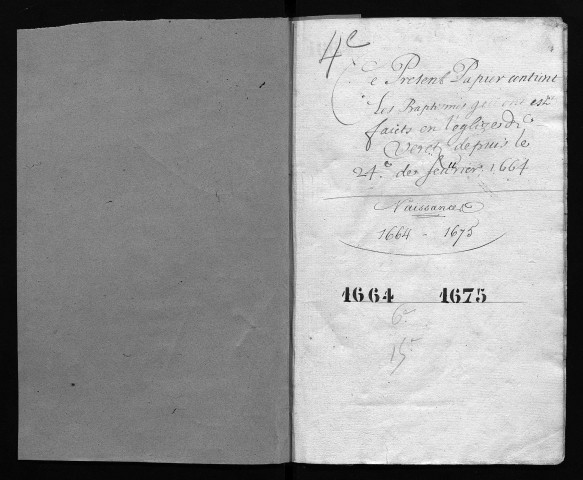 4e
Ce Present Papier contient
Les Baptemes qui ont esté
faicts en l'eglize de
Veretz depuis le
24e de feuvrier 1664
Naissances
1664 - 1675
1664 1675
6e
15e